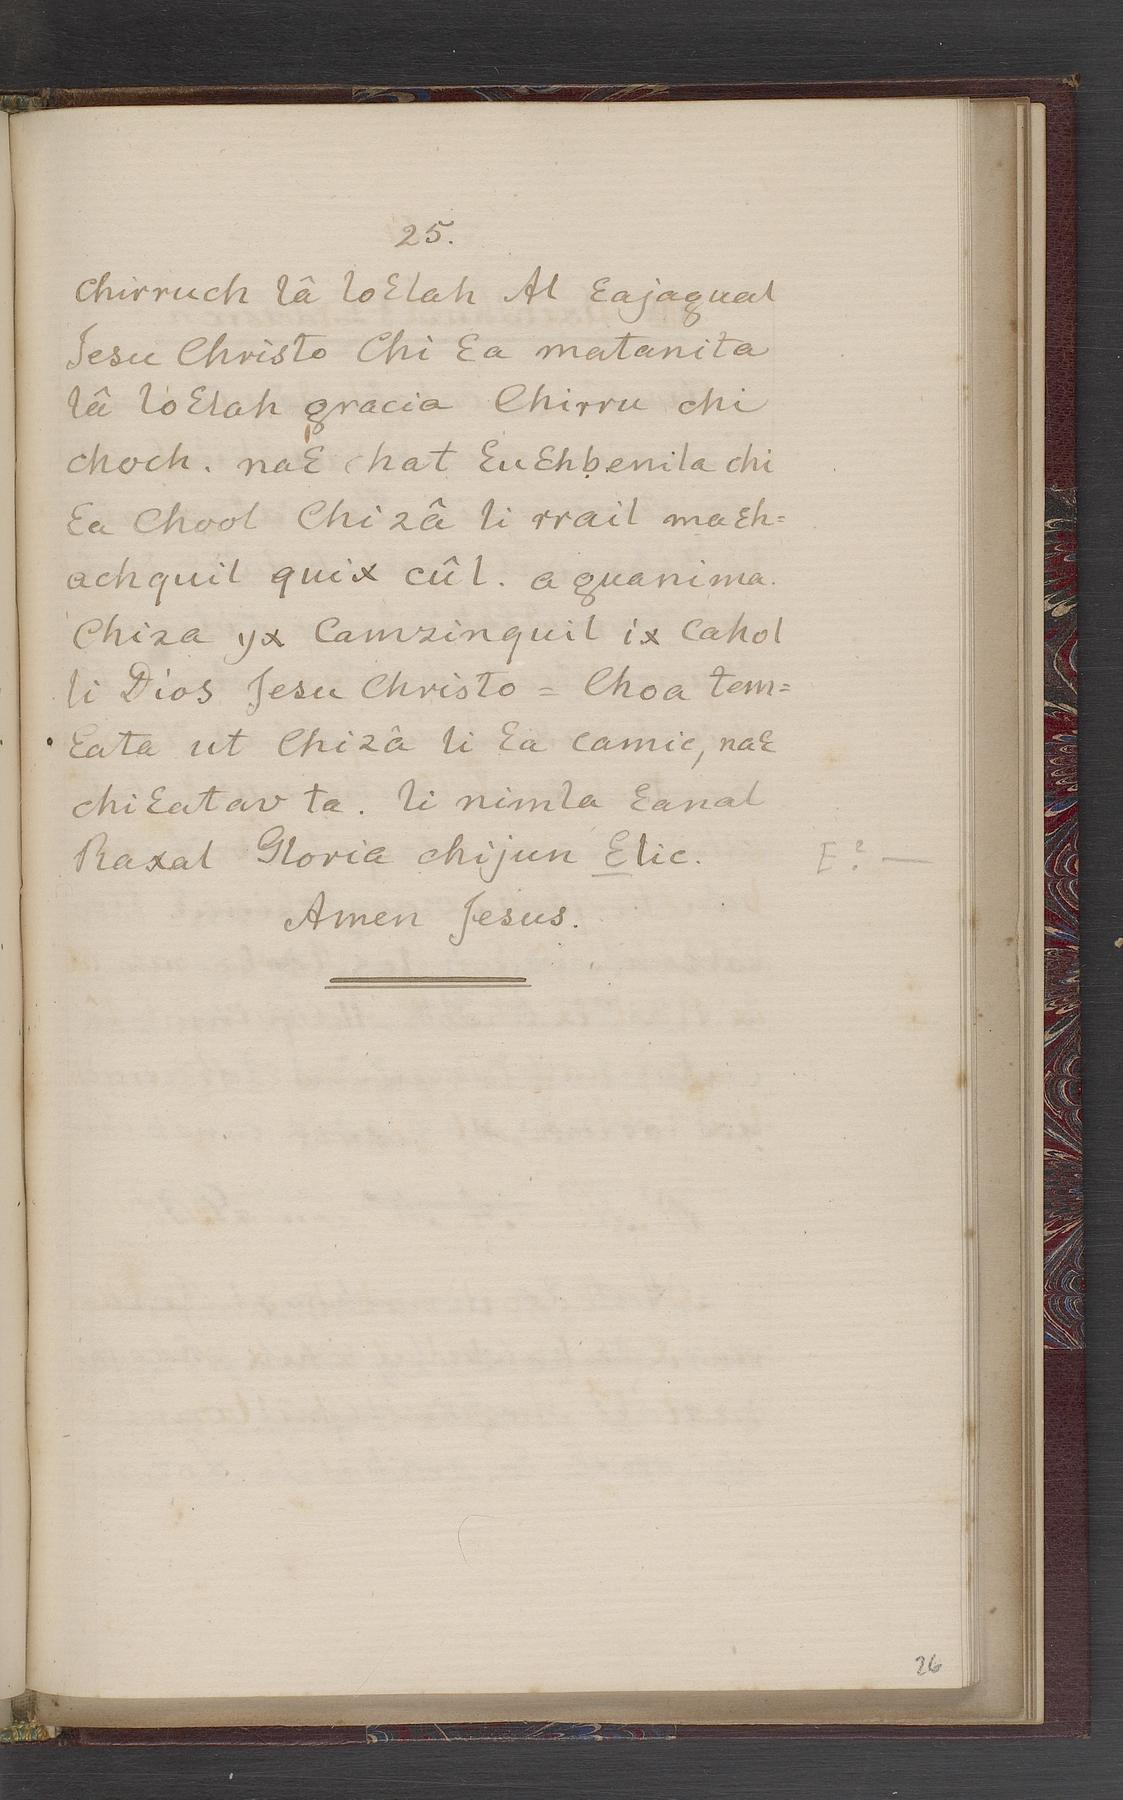 25.
Chirruch lâ loɛlah Al ɛajagual
Jesu Christo Chi ɛa matanita
lâ loɛlah gracia Chirru chi
choch. naɛ chat ɛuɛhbenila chi
ɛa Chool Chizâ li rrail maɛh=
achquil quix cûl. aguanima.
Chiza yx Camzinquil ix Cahol
li Dios Jesu Christo = Choa tem=
ɛata ut Chizâ li ɛa camic, naɛ
chiɛatav ta. li nimla ɛanal
Raxal Gloria chijun ɛlic.
E? —
Amen Jesus.
26